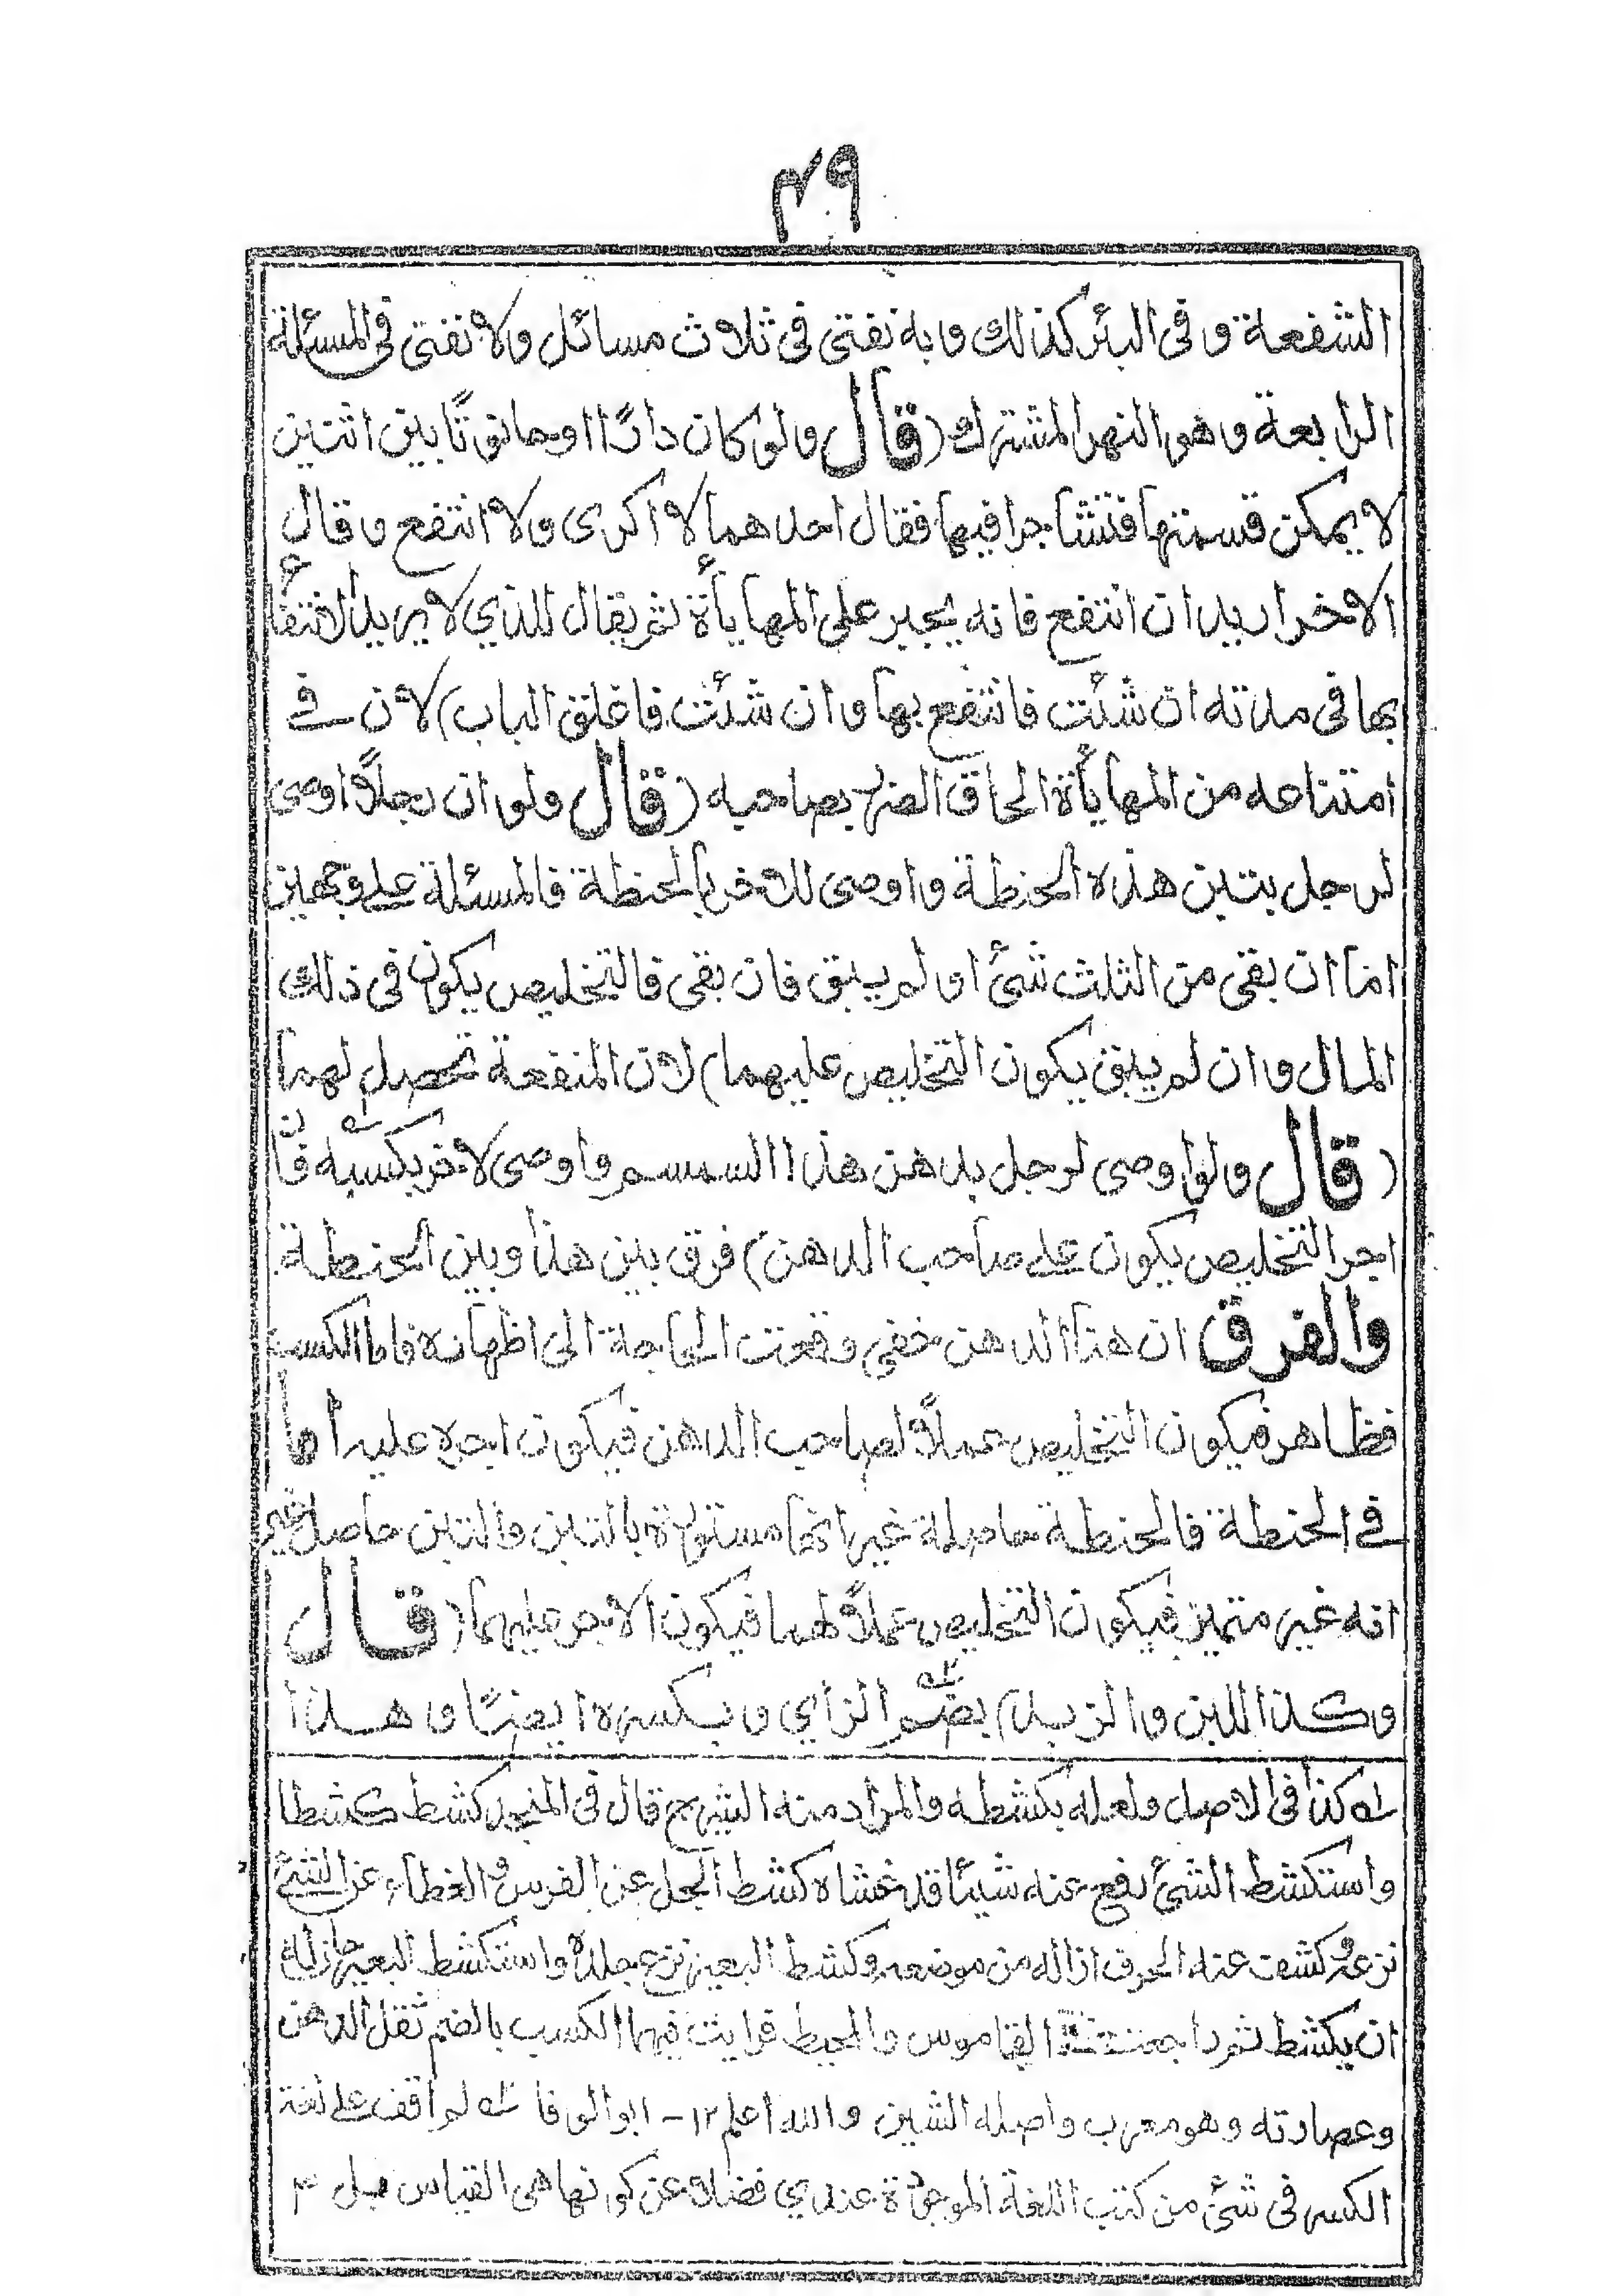 ٤٩
الشفعة و فى البئر كذالك و به نفتى فى ثلاث مسائل ولا نفتى فى المسئلة
الرابعة وهو النهر المشترك (قال ولو كان دارًا او حانوتًا بين اثنين
لا يمكن قسمتها فتشاجرا فيها فقال احدهما لا اكرى ولا انتفع و قال
الاخر اريد ان انتفع فانه يجبر على المهايأة ثم يقال للذي لا يريد الانتفاع
بها فى مدته ان شئت فانتفع بها وان شئت فاغلق الباب) لان فى
امتناعه من المهايأة الحاق الضرر بصاحبه (قال ولو ان رجلاً اوصى
لرجل بتبن هذه الحنطة واوصى للاخر بالحنطة فالمسئلة على وجهين
اما ان بقى من الثلث شئ او لم يبق فان بقى فالتخليص يكون فى ذلك
المال وان لم يبق يكون التخليص عليهما) لان المنفعة تحصل لهما
(قال ولو اوصى لرجل بدهن هذا السمسم واوصى لاخر بكسبه فان
اجر التخليص يكون على صاحب الدهن) فرق بين هذا وبين الحنطة
والفرق ان هذا الدهن خفي وقعت الحاجة الى اظهاره فاما الكسب
فظاهر فيكون التخليص عملاً لصاحب الدهن فيكون اجره عليه أما
فى الحنطة فالحنطة حاصلة غير انها مستورة بالتبن والتبن حاصل غير
انه غير متميز فيكون التخليص عملاً لهما فيكون الاجر عليهما (قال
وكذا اللبن والزبد) بضم الزاي و بكسره ايضًا و هذا
له كذا فى الاصل ولعله بكشطه والمراد منه الشيرج قال فى المنجد كشط كشطا
واستكشط الشئ رفع عنه شيئا قد غشاه كشط الجل عن الفرس والغطاء عن الشئ
نزعه وكشف عنه الحرف ازاله من موضعه وكشط البعير نزع جلده واستكشط البعير حان له
ان يكشط ثم راجعت القاموس والمحيط فرايت فيهما الكسب بالضم ثقل الدهن
وعصارته وهو معرب واصله الشين والله اعلم ١٢ – ابو الوفا له لم اقف على لغة
الكسر فى شئ من كتب اللغة الموجودة عندي فضلا عن كونها هى القياس بل ٣